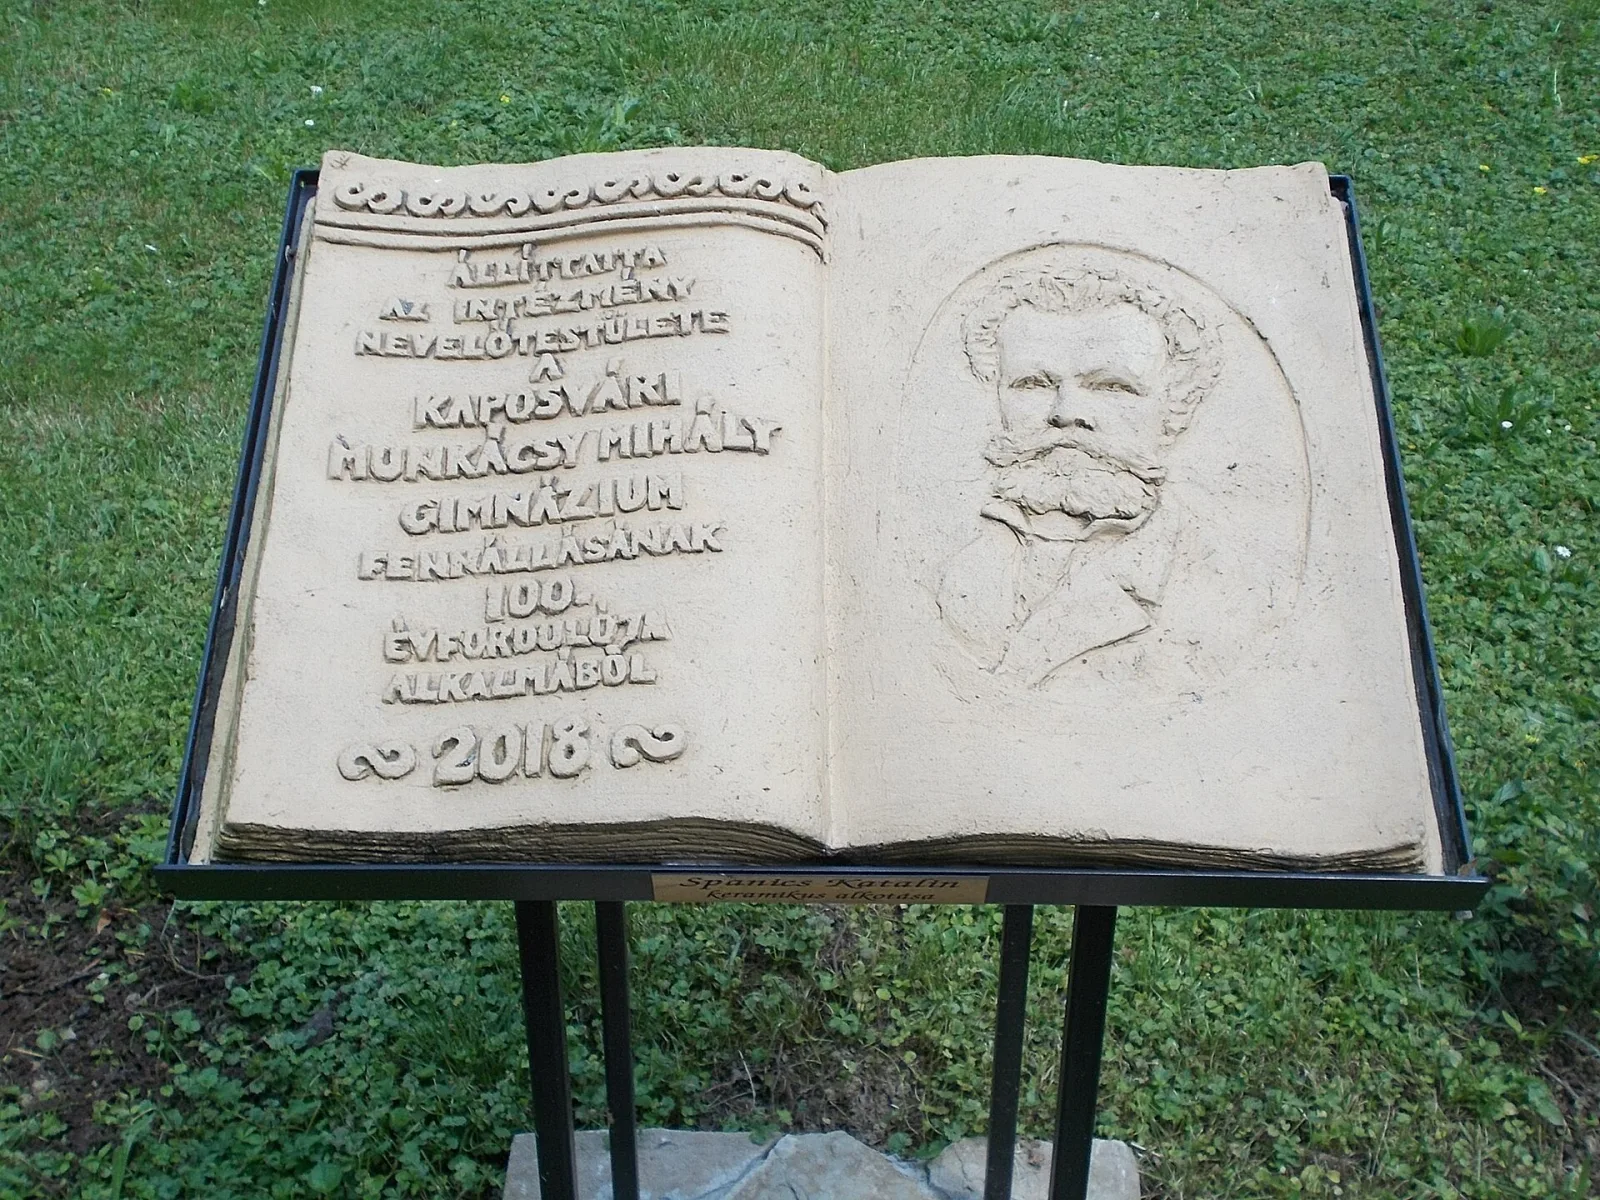 ÁLLÍTTATTA
AZ INTÉZMÉNY
NEVELŐTESTÜLETE
A
KAPOSVÁRI
MUNKÁCSY MIHÁLY
GIMNÁZIUM
FENNÁLLÁSÁNAK
100.
ÉVFORDULÓJA
ALKALMÁBÓL
2018
Spanics Katalin
keramikus alkotása